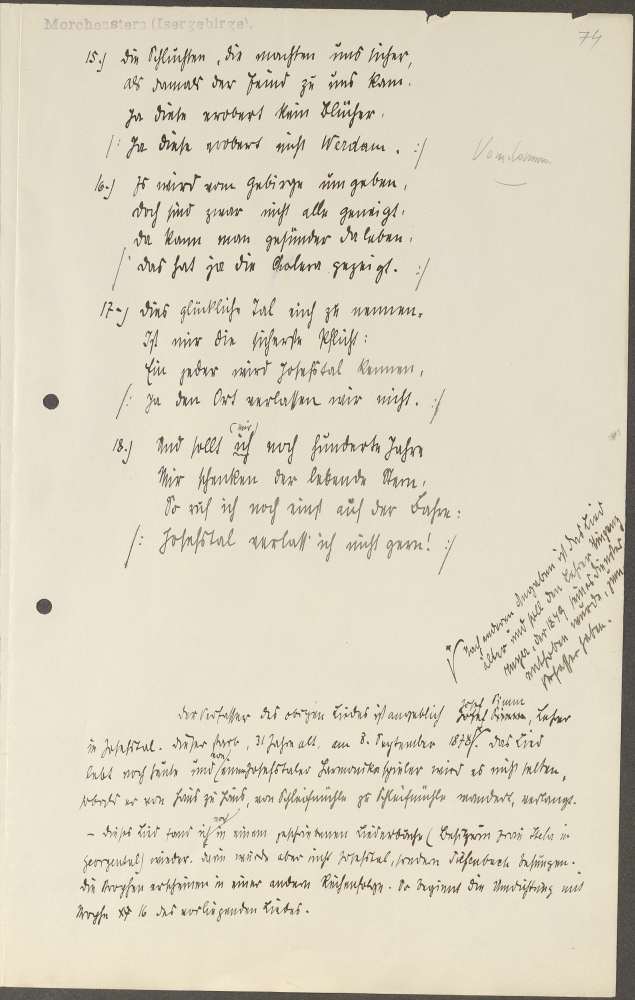 Morchenstern (Isergebirge).
74
15.) Die Schluchten, die machten uns sicher,
als damals der Feind zu uns kam.
Ja diese erobert kein Blücher,
/: Ja diese erobert nicht Werdam. :/
16.) Es wird vom Gebirge umgeben,
doch sind zwar nicht alle geneigt.
Da kann man gesünder da leben,
/: das hat ja die Colera gezeigt. :/
17.) Dies glückliche Tal euch zu nennen,
Ist mir die sicherste Pflicht:
Ein jeder wird Josefstal kennen,
/: Ja den Ort verlassen wir nicht. :/
(mir)
18.) Und sollt ich noch hunderte Jahre
Mir schenken der lebende Stern,
So ruf ich noch einst auf der Bahre:
/: Josefstal verlass' ich nicht gern! :/
Nach anderen Angaben ist das Lied
älter und soll den Lehrer
der 1849 seines Dienstes
enthoben wurde, zum
Verfasser haben.
Josef Simm
Der Verfasser des obigen Liedes ist angeblich Josef Simm, Lehrer
in Josefstal. Dieser starb, 31 Jahre alt, am 8. September 1878. Das Lied
von
lebt noch heute und einem Josefstaler Harmonikaspieler wird es nicht selten,
sobald er von Haus zu Haus, von Schleifmühle zu Schleifmühle wandert, verlangt.
noch
– Dieses Lied fand ich in einem geschriebenen Liederbuche (Besitzerin Frau in
Georgental) wieder. Darin wurde aber nicht Josefstal, sondern besungen.
Die Strophen erscheinen in einer andern Reihenfolge. So beginnt die Umdichtung mit
Strophe 16 des vorliegenden Liedes.